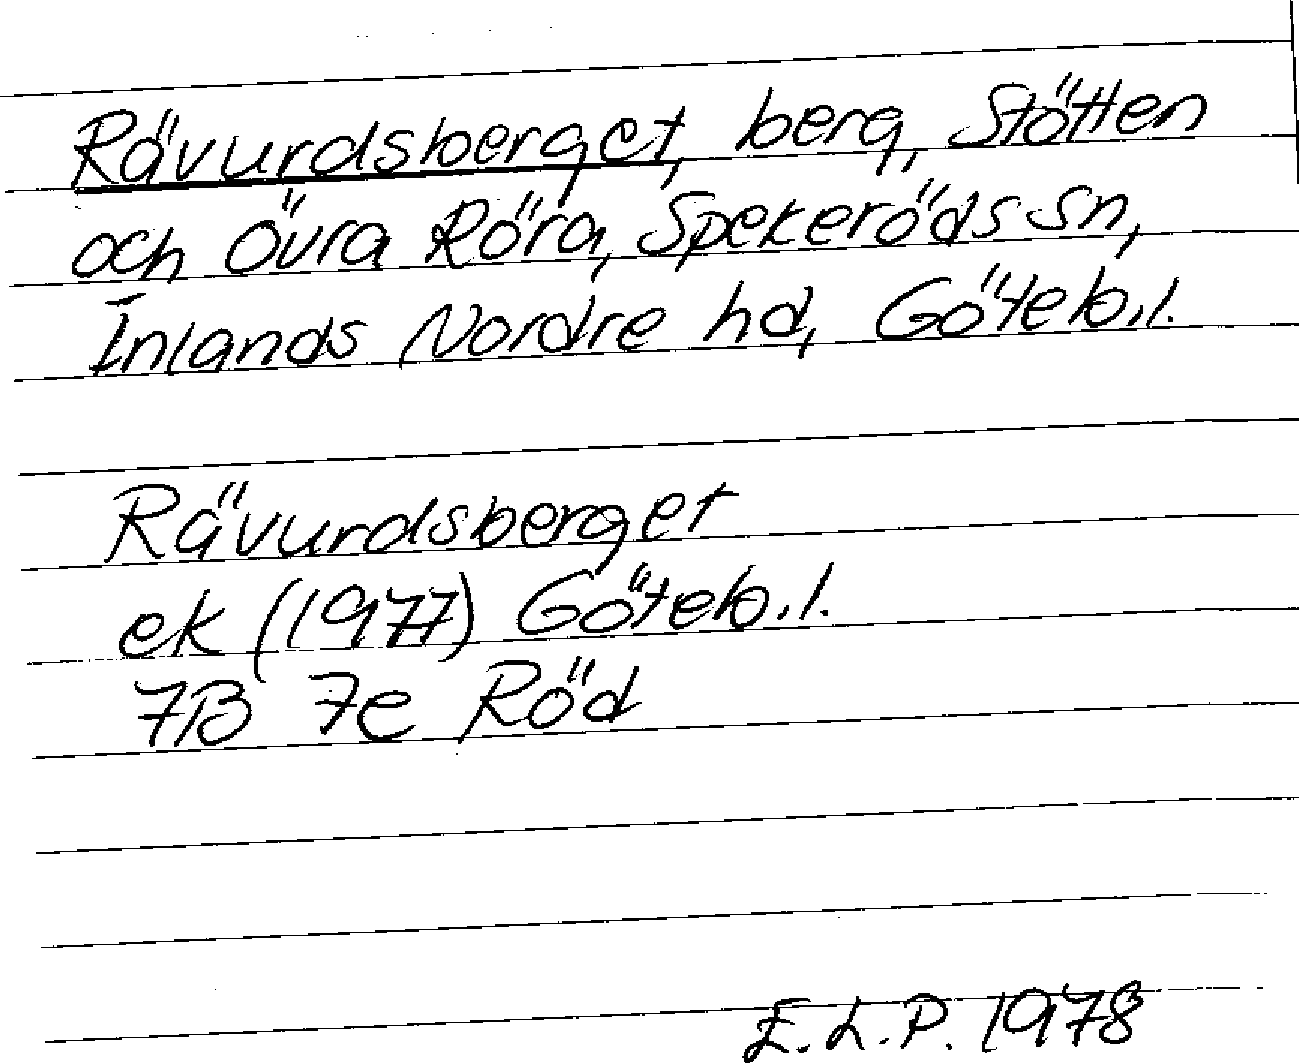 Rävurdsberget, berg, Stötten
och Övra Röra, Spekeröds sn,
Inlands Nordre hd, Göteb.l.
Rävurdsberget
ek (1977) Göteb.l.
7B 7e Röd
E.L.P. 1978